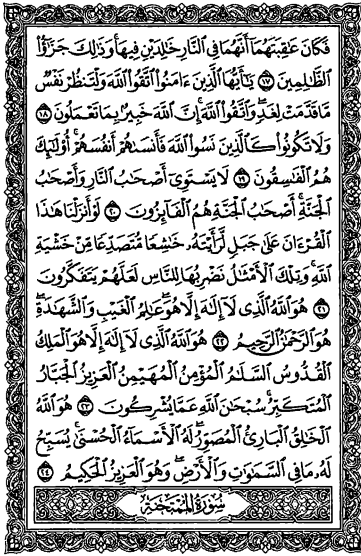 فَكَانَ عَـٰقِبَتَهُمَآ أَنَّهُمَا فِى ٱلنَّارِ خَـٰلِدَيْنِ فِيهَا ۚ وَذَٰلِكَ جَزَٰٓؤُا۟
ٱلظَّـٰلِمِينَ ١٧ يَـٰٓأَيُّهَا ٱلَّذِينَ ءَامَنُوا۟ ٱتَّقُوا۟ ٱللَّهَ وَلْتَنظُرْ نَفْسٌ
مَّا قَدَّمَتْ لِغَدٍ ۖ وَٱتَّقُوا۟ ٱللَّهَ ۚ إِنَّ ٱللَّهَ خَبِيرٌۢ بِمَا تَعْمَلُونَ ١٨
وَلَا تَكُونُوا۟ كَٱلَّذِينَ نَسُوا۟ ٱللَّهَ فَأَنسَىٰهُمْ أَنفُسَهُمْ ۚ أُو۟لَـٰٓئِكَ
هُمُ ٱلْفَـٰسِقُونَ ١٩ لَا يَسْتَوِىٓ أَصْحَـٰبُ ٱلنَّارِ وَأَصْحَـٰبُ
ٱلْجَنَّةِ ۚ أَصْحَـٰبُ ٱلْجَنَّةِ هُمُ ٱلْفَآئِزُونَ ٢٠ لَوْ أَنزَلْنَا هَـٰذَا
ٱلْقُرْءَانَ عَلَىٰ جَبَلٍ لَّرَأَيْتَهُۥ خَـٰشِعًا مُّتَصَدِّعًا مِّنْ خَشْيَةِ
ٱللَّهِ ۚ وَتِلْكَ ٱلْأَمْثَـٰلُ نَضْرِبُهَا لِلنَّاسِ لَعَلَّهُمْ يَتَفَكَّرُونَ
٢١ هُوَ ٱللَّهُ ٱلَّذِى لَآ إِلَـٰهَ إِلَّا هُوَ ۖ عَـٰلِمُ ٱلْغَيْبِ وَٱلشَّهَـٰدَةِ ۖ
هُوَ ٱلرَّحْمَـٰنُ ٱلرَّحِيمُ ٢٢ هُوَ ٱللَّهُ ٱلَّذِى لَآ إِلَـٰهَ إِلَّا هُوَ ٱلْمَلِكُ
ٱلْقُدُّوسُ ٱلسَّلَـٰمُ ٱلْمُؤْمِنُ ٱلْمُهَيْمِنُ ٱلْعَزِيزُ ٱلْجَبَّارُ
ٱلْمُتَكَبِّرُ ۚ سُبْحَـٰنَ ٱللَّهِ عَمَّا يُشْرِكُونَ ٢٣ هُوَ ٱللَّهُ
ٱلْخَـٰلِقُ ٱلْبَارِئُ ٱلْمُصَوِّرُ ۖ لَهُ ٱلْأَسْمَآءُ ٱلْحُسْنَىٰ ۚ يُسَبِّحُ
لَهُۥ مَا فِى ٱلسَّمَـٰوَٰتِ وَٱلْأَرْضِ ۖ وَهُوَ ٱلْعَزِيزُ ٱلْحَكِيمُ ٢٤
سُورَةُ ٱلْمُمْتَحَنَةِ